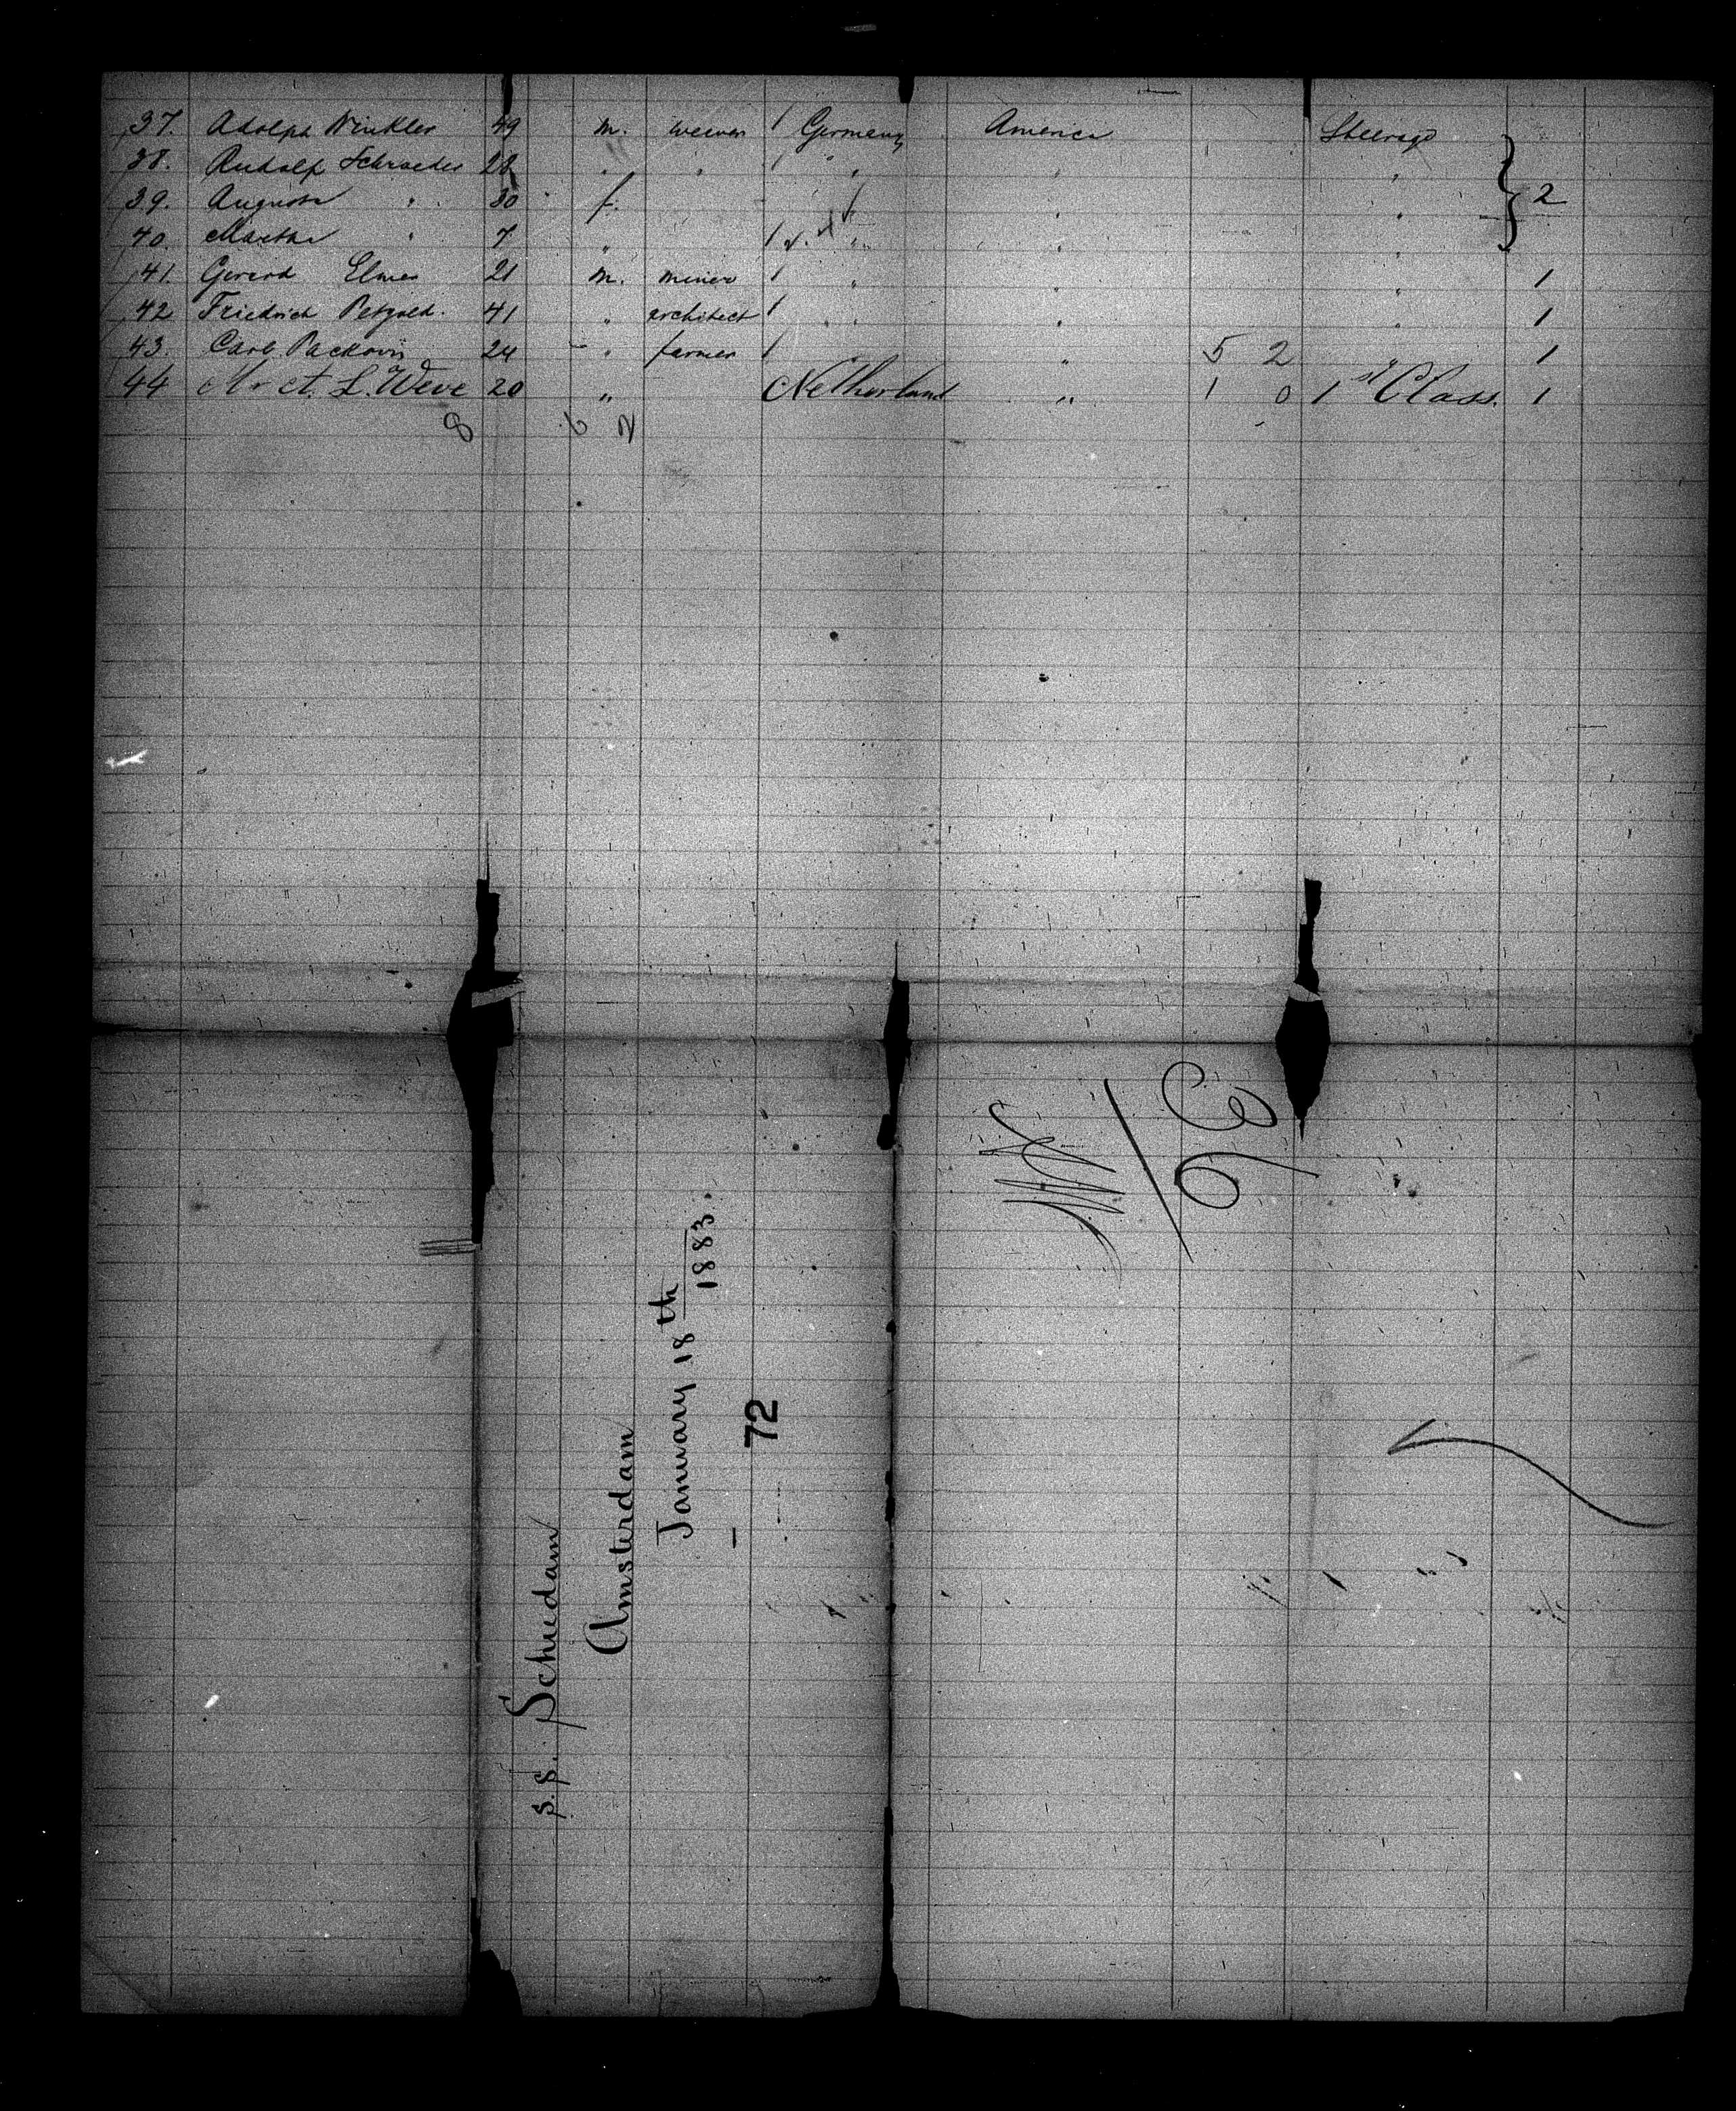 37. Adolph Winkler 49 m. weever 1 Germany America Steerage
38. Rudolf Schroeder 28 " " 1 " " "
39. Augusta " 30 f. " " " } 2
40. Martha " 7 " 1 " " "
41. Gerard Elmer 21 m. miner 1 " " " 1
42 Friedrich Petzold. 41 " architect 1 " " " 1
43. Carl 24 " farmer 1 " 5 2 " 1
44 Mr A. L. Weve 20 " Netherland " 1 0 1st Class. 1
8 6 2
36
S.S. Schiedam
Amsterdam
January 18th
1883.
72